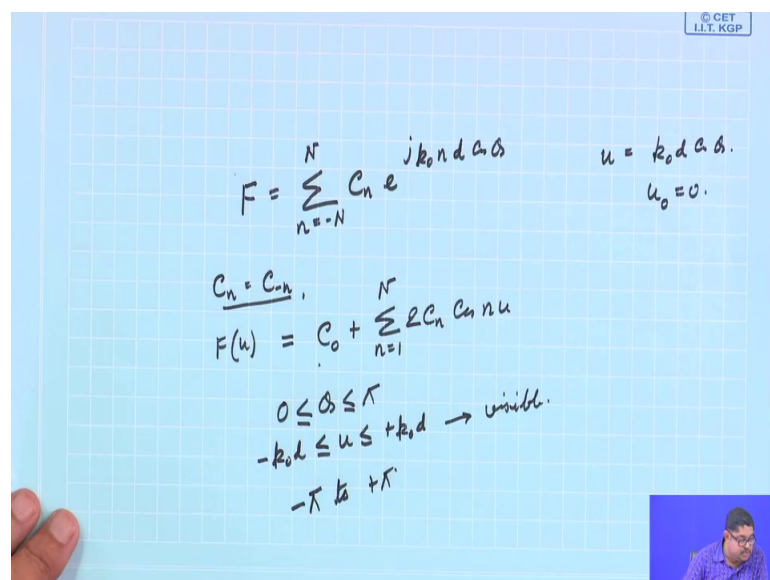 © CET
I.I.T. KGP
F = \sum_{n=-N}^{N} C_n e^{j k_0 n d cos θ}
u = k_0 d cos θ.
u_0 = 0.
C_n = C_{-n},
F(u) = C_0 + \sum_{n=1}^{N} 2C_n cos nu
0 ≤ θ ≤ π
-k_0 d ≤ u ≤ +k_0 d → visible.
-π to +π